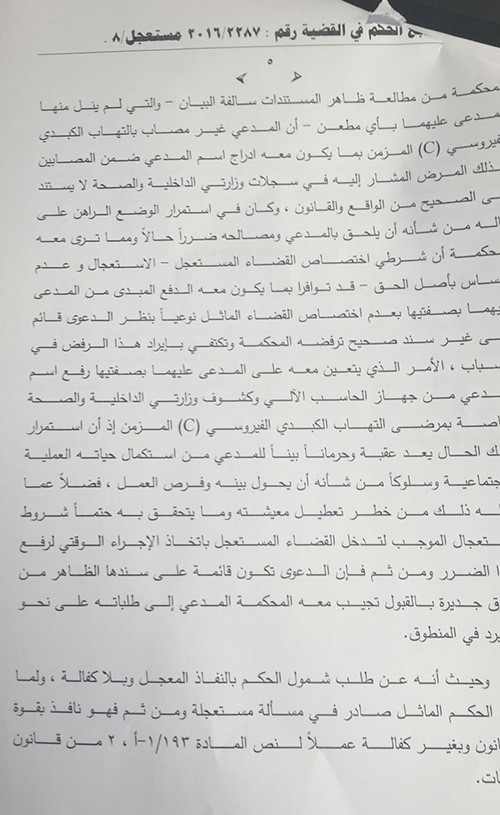 ع الحكم في القضية رقم : ٢٠١٦/٢٢٨٧ مستعجل/٨ .
٥
محكمة من مطالعة ظاهر المستندات سالفة البيان – والتي لم ينل منها
مدعى عليهما بأي مطعن – أن المدعي غير مصاب بالتهاب الكبدي
فيروسي (C) المزمن بما يكون معه ادراج اسم المدعي ضمن المصابين
ذلك المرض المشار إليه في سجلات وزارتي الداخلية والصحة لا يستند
ى الصحيح من الواقع والقانون ، وكان في استمرار الوضع الراهن على
اله من شأنه أن يلحق بالمدعي ومصالحه ضرراً حالاً ومما ترى معه
محكمة أن شرطي اختصاص القضاء المستعجل – الاستعجال و عدم
ساس بأصل الحق – قد توافرا بما يكون معه الدفع المبدى من المدعى
يهما بصفتيها بعدم اختصاص القضاء الماثل نوعياً بنظر الدعوى قائم
ى غير سند صحيح ترفضه المحكمة وتكتفي بإيراد هذا الرفض في
سباب ، الأمر الذي يتعين معه على المدعى عليهما بصفتيها رفع اسم
مدعي من جهاز الحاسب الآلي وكشوف وزارتي الداخلية والصحة
اصة بمرضى التهاب الكبدي الفيروسي (C) المزمن إذ أن استمرار
ك الحال يعد عقبة وحرماناً بيناً للمدعي من استكمال حياته العملية
جتماعية وسلوكاً من شأنه أن يحول بينه وفرص العمل ، فضلاً عما
له ذلك من خطر تعطيل معيشته وما يتحقق به حتماً شروط
ستعجال الموجب لتدخل القضاء المستعجل باتخاذ الإجراء الوقتي لرفع
ا الضرر ومن ثم فإن الدعوى تكون قائمة على سندها الظاهر من
ق جديرة بالقبول تجيب معه المحكمة المدعي إلى طلباته على نحو
يرد في المنطوق.
وحيث أنه عن طلب شمول الحكم بالنفاذ المعجل وبلا كفالة ، ولما
الحكم الماثل صادر في مسألة مستعجلة ومن ثم فهو نافذ بقوة
انون وبغير كفالة عملاً لنص المادة ١/١٩٣-أ ، ٢ من قانون
ات.